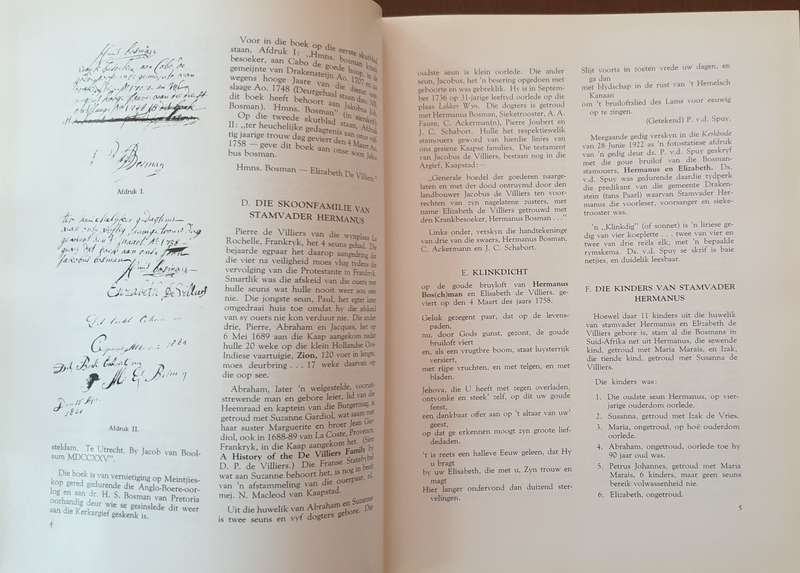 Afdruk I.
Afdruk II.
steldam. Te Utrecht. By Jacob van Bool-
sum MDCCXXXV".
Die boek is van vernietiging op Meintjies-
kop gered gedurende die Anglo-Boere-oor-
log en aan dr. H. S. Bosman van Pretoria
oorhandig deur wie se gesinslede dit weer
aan die Kerkargief geskenk is.
4
Voor in die boek op die eerste skutblad
staan, Afdruk I: „Hmns. bosman
besoeker, aan Cabo de goede hoop, in de
gemeijnte van Drakensteijn Ao. 1707 en
wegens hooge Jaare van die dienst
slaage Ao. 1748 (Deurgehaal staan dan: Wil
dit boek heeft behoort aan Jakobus Joh.
Bosman). Hmns. Bosman"
Op die tweede skutblad staan, Afdruk
II: „ter heuchelijke gedagtenis aan onse vijf-
tig jaarige trouw dag geviert den 4 Maart Ao.
1758 — geve dit boek aan onse soon Jako-
bus bosman.
Hmns. Bosman — Elizabeth De Villiers."
D. DIE SKOONFAMILIE VAN
STAMVADER HERMANUS
Pierre de Villiers van die wynplaas La
Rochelle, Frankryk, het 4 seuns gehad. Die
bejaarde egpaar het daarop aangedring dat
die vier na veiligheid moes vlug tydens die
vervolging van die Protestante in Frankryk.
Smartlik was die afskeid van die ouers met
hulle seuns wat hulle nooit weer sou sien
nie. Die jongste seun, Paul, het egter later
omgedraai huis toe omdat hy die afskeid
van sy ouers nie kon verduur nie. Die ander
drie, Pierre, Abraham en Jacques, het op
6 Mei 1689 aan die Kaap aangekom nadat
hulle 20 weke op die klein Hollandse Oos-
Indiese vaartuigie, Zion, 120 voet in lengte,
moes deurbring . . . 17 weke daarvan op
die oop see.
Abraham, later 'n welgestelde, vooruit-
strewende man en gebore leier, lid van die
Heemraad en kaptein van die Burgermag, is
getroud met Suzanne Gardiol, wat saam met
haar suster Marguerite en broer Jean Gar-
diol, ook in 1688-89 van La Coste, Provence,
Frankryk, in die Kaap aangekom het. (Sien
A History of the De Villiers Family by
D. P. de Villiers.) Die Franse Statebybel
wat aan Suzanne behoort het, is nog in besit
van 'n afstammeling van die ouerpaar, nl.
mej. N. Macleod van Kaapstad.
Uit die huwelik van Abraham en Suzanne
is twee seuns en vyf dogters gebore. Die
oudste seun is klein oorlede. Die ander
seun, Jacobus, het 'n besering opgedoen met
geboorte en was gebreklik. Hy is in September
1736 op 31-jarige leeftyd oorlede op die
plaas Lekker Wyn. Die dogters is getroud
met Hermanus Bosman, Sieketrooster, A. A.
Faure, C. Ackerman(n), Pierre Joubert en
J. C. Schabort. Hulle het respektiewelik
stamouers geword van hierdie linies van
ons gesiene Kaapse families. Die testament
van Jacobus de Villiers, bestaan nog in die
Argief, Kaapstad:—
„Generale boedel der goederen naarge-
laten en met der dood ontruymd door den
landbouwer Jacobus de Villiers ten voor-
rechten zyn nagelatene zusters, met
name Elizabeth de Villiers getrouwd met
den Krankbesoeker, Hermanus Bosman . . ."
Links onder, verskyn die handtekeninge
van drie van die swaers, Hermanus Bosman,
C. Ackermann en J. C. Schabort.
E. KLINKDICHT
op de goude bruyloft van Hermanus
Bos(ch)man en Elisabeth de Villiers. ge-
viert op den 4 Maart des jaers 1758.
Geluk gezegent paar, dat op de levens-
paden,
nu, door Gods gunst, gezont, de goude
bruiloft viert
en, als een vrugtbre boom, staat luysterrijk
versiert,
met rijpe vruchten, en met telgen, en met
bladen.
Jehova, die U heeft met tegen overladen,
ontvonke en steek' zelf, op dit uw goude
feest,
een dankbaar offer aan op 't altaar van uw'
geest,
op dat ge erkennen moogt zyn groote lief-
dedaden.
't is reets een halleve Eeuw geleen, dat Hy
u bragt
by uw Elisabeth, die met u, Zyn trouw en
magt
Hier langer ondervond dan duizend ster-
velingen.
Slijt voorts in zoeten vrede uw dagen, en
ga dan
met blydschap in de rust van 't Hemelsch
Kanaan
om 't bruiloftslied des Lams voor eeuwig
op te zingen.
(Getekend) P. v.d. Spuy.
Meegaande gedig verskyn in die Kerkbode
van 28 Junie 1922 as 'n fotostatiese afdruk
van 'n gedig deur ds. P. v.d. Spuy geskryf
met die goue bruilof van die Bosman-
stamouers, Hermanus en Elizabeth. Ds.
v.d. Spuy was gedurende daardie tydperk
die predikant van die gemeente Draken-
stein (tans Paarl) waarvan Stamvader Her-
manus die voorleser, voorsanger en sieke-
trooster was.
'n „Klinkdig" (of sonnet) is 'n liriese ge-
dig van vier koeplette . . . twee van vier en
twee van drie reëls elk, met 'n bepaalde
rymskema. Ds. v.d. Spuy se skrif is baie
netjies, en duidelik leesbaar.
F. DIE KINDERS VAN STAMVADER
HERMANUS
Hoewel daar 11 kinders uit die huwelik
van stamvader Hermanus en Elizabeth de
Villiers gebore is, stam al die Bosmans in
Suid-Afrika net uit Hermanus, die sewende
kind, getroud met Maria Marais, en Izak,
die tiende kind, getroud met Susanna de
Villiers.
Die kinders was:
1. Die oudste seun Hermanus, op vier-
jarige ouderdom oorlede.
2. Susanna, getroud met Izak de Vries.
3. Maria, ongetroud, op hoë ouderdom
oorlede.
4. Abraham, ongetroud, oorlede toe hy
90 jaar oud was.
5. Petrus Johannes, getroud met Maria
Marais, 6 kinders, maar geen seuns
bereik volwassenheid nie.
6. Elizabeth, ongetroud.
5